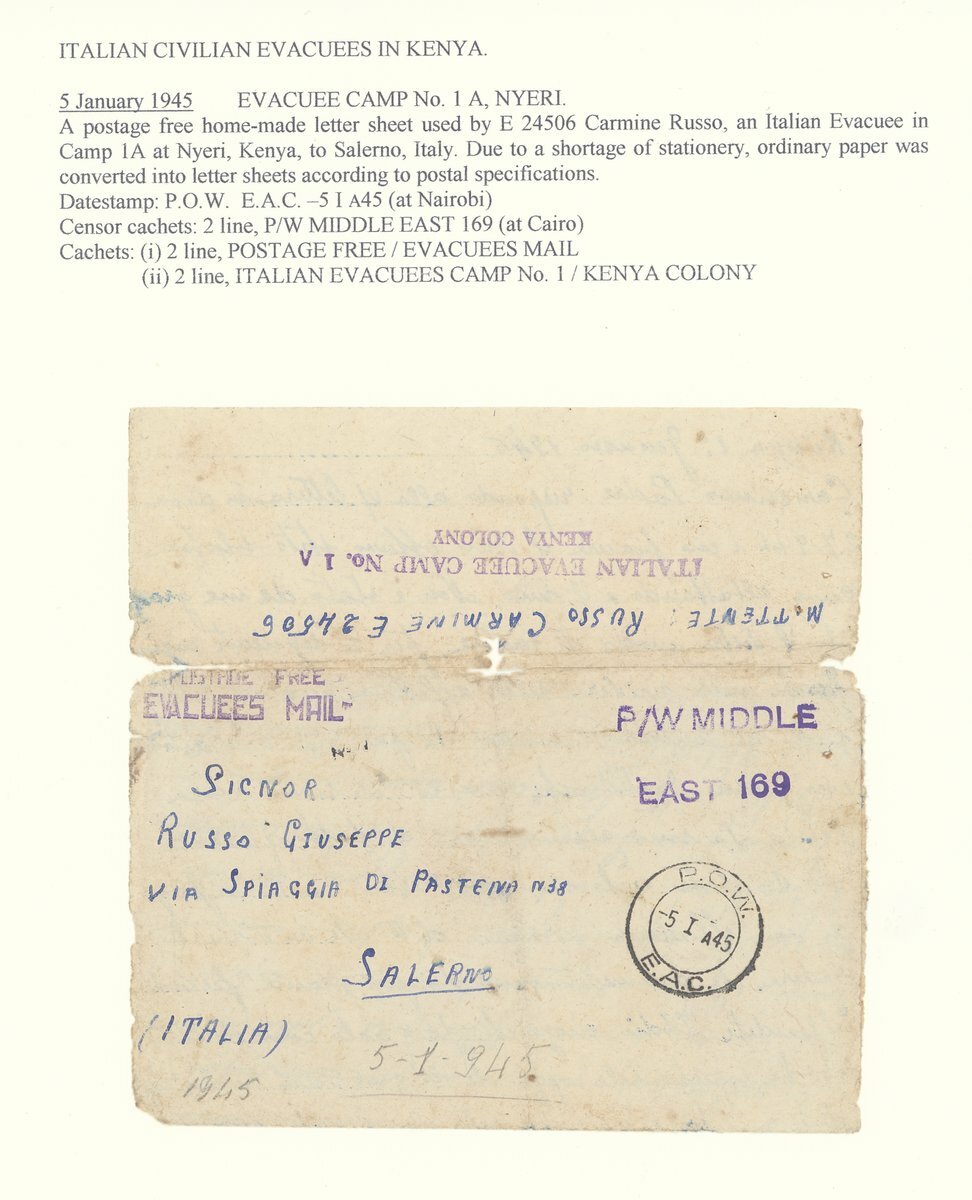 ITALIAN CIVILIAN EVACUEES IN KENYA.
5 January 1945 EVACUEE CAMP No. 1 A, NYERI.
A postage free home-made letter sheet used by E 24506 Carmine Russo, an Italian Evacuee in
Camp 1A at Nyeri, Kenya, to Salerno, Italy. Due to a shortage of stationery, ordinary paper was
converted into letter sheets according to postal specifications.
Datestamp: P.O.W. E.A.C. –5 I A45 (at Nairobi)
Censor cachets: 2 line, P/W MIDDLE EAST 169 (at Cairo)
Cachets: (i) 2 line, POSTAGE FREE / EVACUEES MAIL
(ii) 2 line, ITALIAN EVACUEES CAMP No. 1 / KENYA COLONY
MITTENTE: RUSSO CARMINE E 24506
ITALIAN EVACUEE CAMP No. 1 A
KENYA COLONY
POSTAGE FREE
EVACUEES MAIL
P/W MIDDLE
EAST 169
SIGNOR
RUSSO GIUSEPPE
VIA SPIAGGIA DI PASTENA N38
P.O.W.
-5 I A45
E.A.C.
SALERNO
(ITALIA)
5-1-945
1945